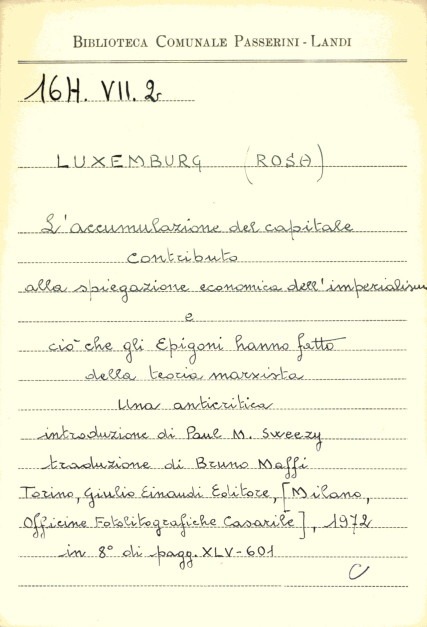 BIBLIOTECA COMUNALE PASSERINI - LANDI
16H. VII. 2
LUXEMBURG (ROSA)
L'accumulazione del capitale
contributo
alla spiegazione economica dell'imperialism
e
ciò che gli Epigoni hanno fatto
della teoria marxista
Una anticritica
introduzione di Paul M. Sweezy
traduzione di Bruno Maffi
Torino, Giulio Einaudi Editore, [Milano,
Officine Fotolitografiche Casarile], 1972
in 8° di pagg. XLV-601
C